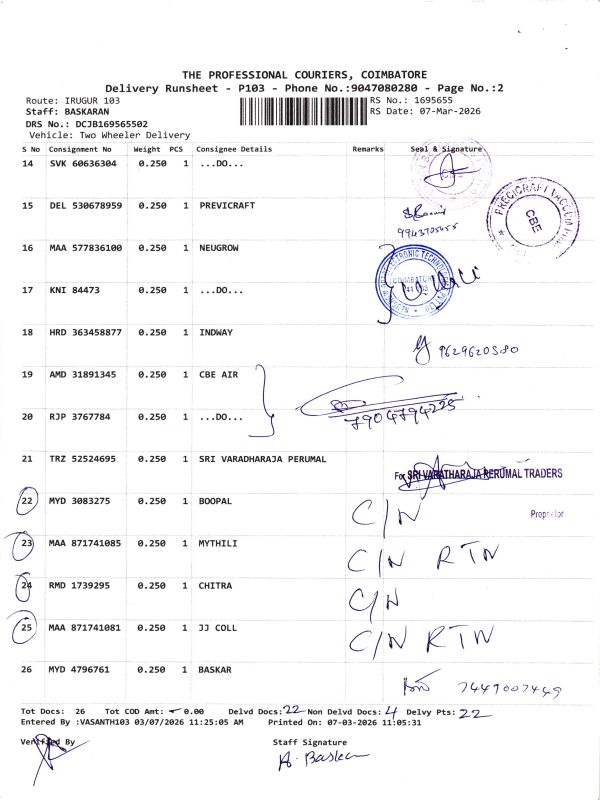 THE PROFESSIONAL COURIERS, COIMBATORE
Delivery Runsheet - P103 - Phone No.:9047080280 - Page No.:2
Route: IRUGUR 103
RS No.: 1695655
Staff: BASKARAN
RS Date: 07-Mar-2026
DRS No.: DCJB169565502
Vehicle: Two Wheeler Delivery
S No Consignment No Weight PCS Consignee Details Remarks Seal & Signature
14 SVK 60636304 0.250 1 ...DO...
15 DEL 530678959 0.250 1 PREVICRAFT
9943705455
PRECICRAFT VACCUM
CBE
16 MAA 577836100 0.250 1 NEUGROW
17 KNI 84473 0.250 1 ...DO...
18 HRD 363458877 0.250 1 INDWAY
9629620580
19 AMD 31891345 0.250 1 CBE AIR
20 RJP 3767784 0.250 1 ...DO...
7904794225
21 TRZ 52524695 0.250 1 SRI VARADHARAJA PERUMAL
For SRI VARATHARAJA PERUMAL TRADERS
Proprietor
22 MYD 3083275 0.250 1 BOOPAL C/N
23 MAA 871741085 0.250 1 MYTHILI C/N RTN
24 RMD 1739295 0.250 1 CHITRA C/N
25 MAA 871741081 0.250 1 JJ COLL C/N RTN
26 MYD 4796761 0.250 1 BASKAR 7449007449
Tot Docs: 26 Tot COD Amt: 0.00 Delvd Docs: 22 Non Delvd Docs: 4 Delvy Pts: 22
Entered By :VASANTH103 03/07/2026 11:25:05 AM Printed On: 07-03-2026 11:05:31
Verified By Staff Signature
A. Baskar